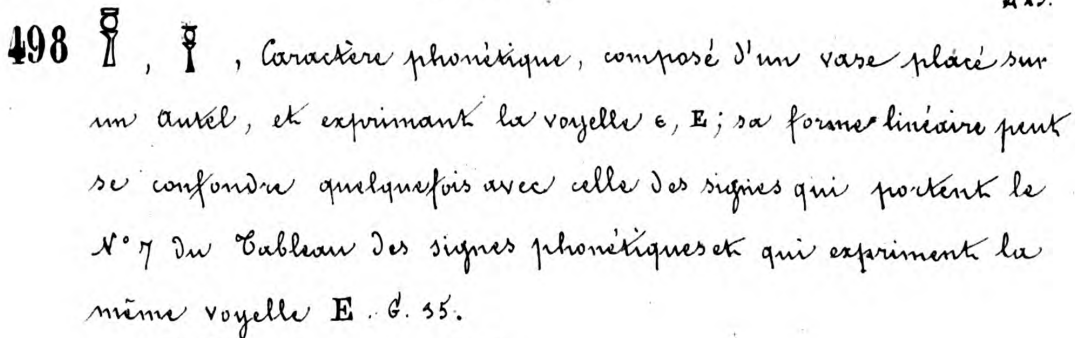 498 𓊵, 𓊵, Caractère phonétique, composé d'un vase placé sur
un autel, et exprimant la voyelle ⲉ, E; sa forme linéaire peut
se confondre quelquefois avec celle des signes qui portent le
N° 7 du Tableau des signes phonétiques et qui expriment la
même voyelle E. G. 35.